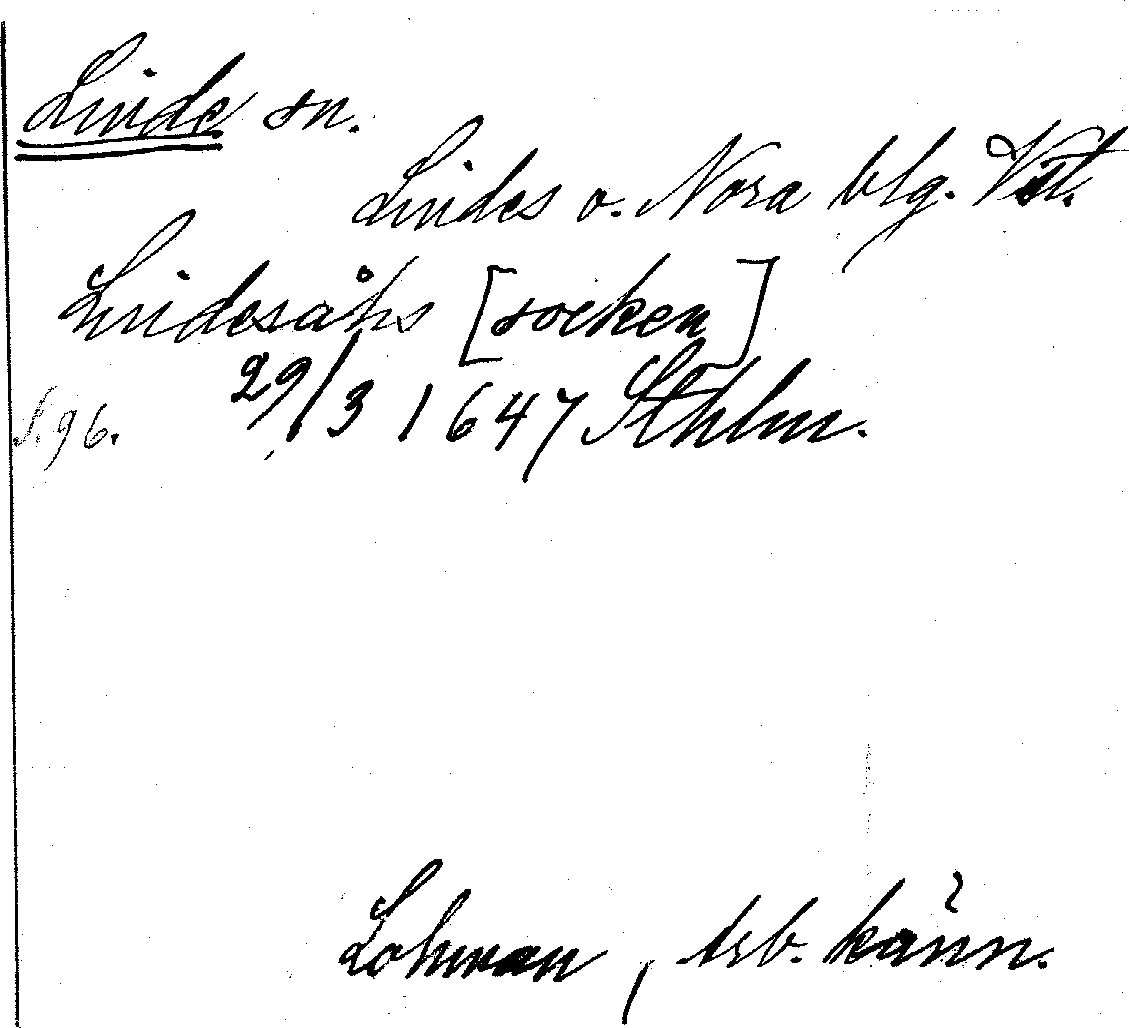 Linde sn.
Lindes o. Nora blg. Vstl.
Lindesåhs [socken]
29/3 1647 Sthlm.
S. 96.
Lohman, Arb. känn.